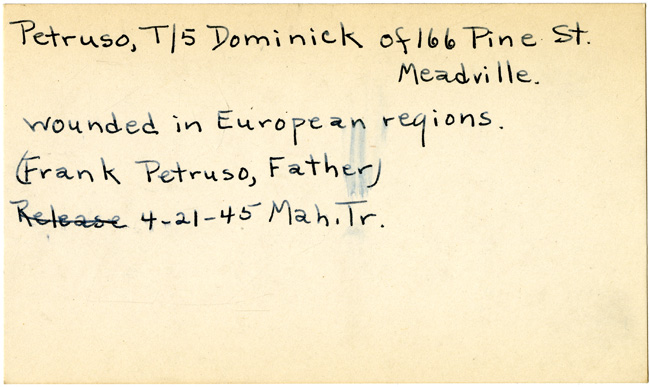 Petruso, T/5 Dominick of 166 Pine St.
Meadville.
wounded in European regions.
(Frank Petruso, Father)
Release 4-21-45 Mah. Tr.